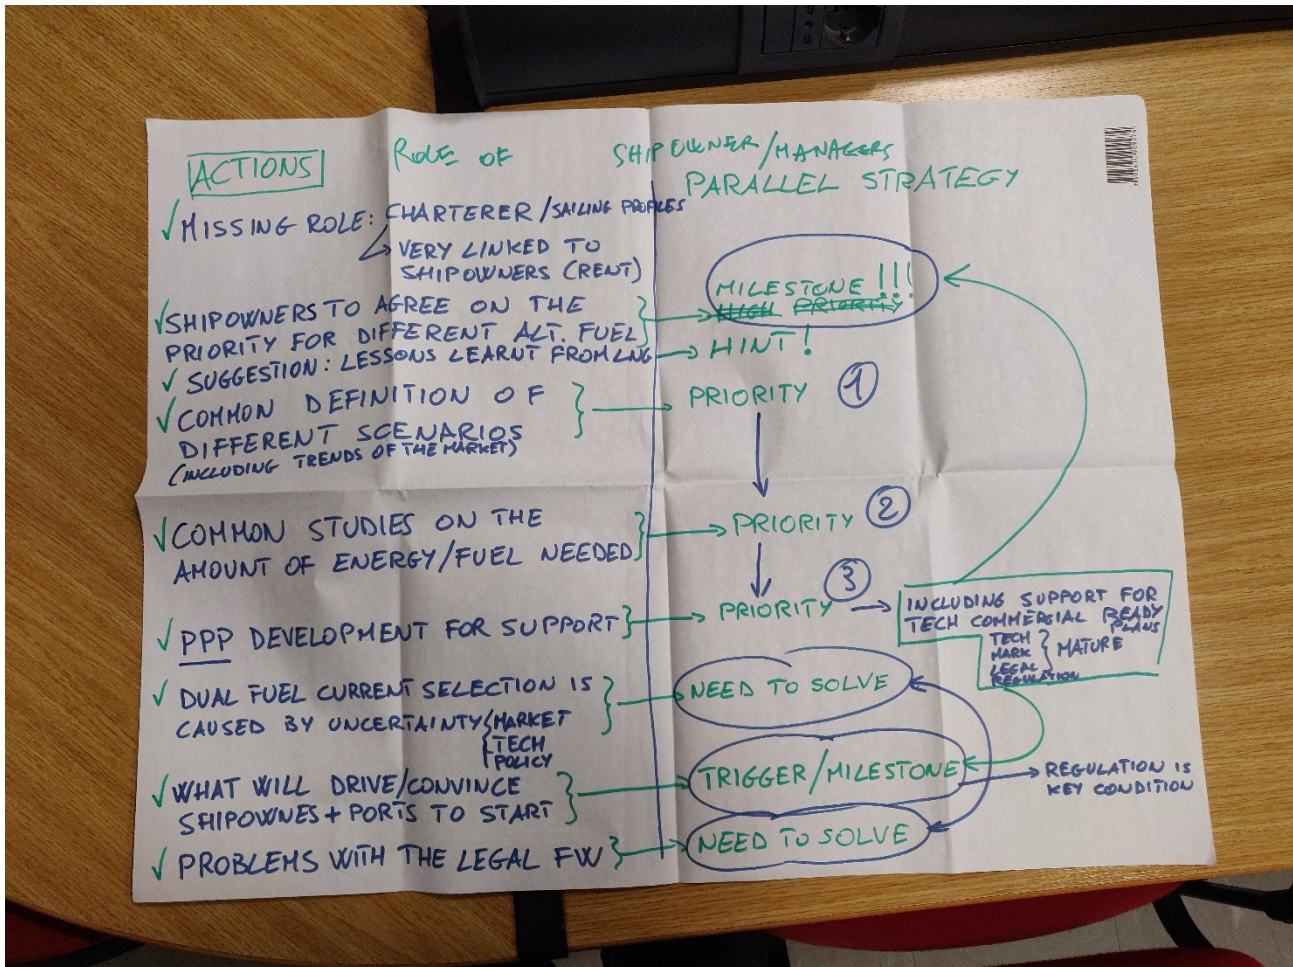 ACTIONS
ROLE OF SHIPOWNER/MANAGERS
PARALLEL STRATEGY
✓ MISSING ROLE: CHARTERER/SAILING PROFILES
VERY LINKED TO
SHIPOWNERS (RENT)
✓ SHIPOWNERS TO AGREE ON THE
PRIORITY FOR DIFFERENT ALT. FUEL
MILESTONE!!!
HIGH PRIORITY
✓ SUGGESTION: LESSONS LEARNT FROM LNG → HINT!
✓ COMMON DEFINITION OF
DIFFERENT SCENARIOS
(INCLUDING TRENDS OF THE MARKET)
PRIORITY 1
✓ COMMON STUDIES ON THE
AMOUNT OF ENERGY/FUEL NEEDED
PRIORITY 2
✓ PPP DEVELOPMENT FOR SUPPORT
PRIORITY 3
INCLUDING SUPPORT FOR
TECH COMMERCIAL READY
PLANS
TECH
MARK
LEGAL
REGULATION
MATURE
✓ DUAL FUEL CURRENT SELECTION IS
CAUSED BY UNCERTAINTY MARKET
TECH
POLICY
NEED TO SOLVE
✓ WHAT WILL DRIVE/CONVINCE
SHIPOWNES + PORTS TO START
TRIGGER/MILESTONE
REGULATION IS
KEY CONDITION
✓ PROBLEMS WITH THE LEGAL FW
NEED TO SOLVE